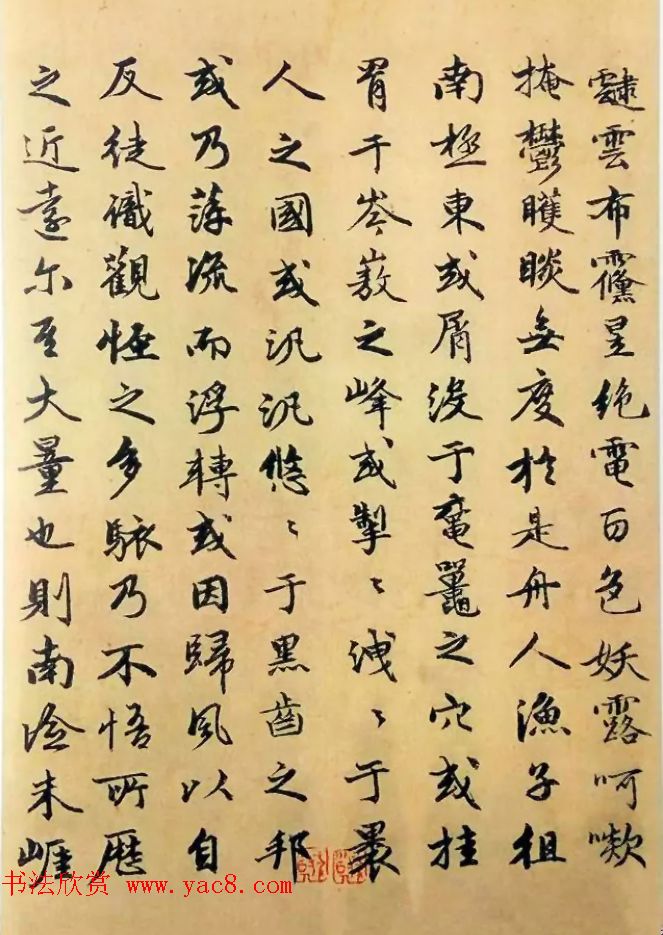 雲布昱絕電百色妖露呵嗽
掩鬱矆睒無度於是舟人漁子徂
南極東或屑沒于黿鼉之穴或挂
罥于岑嶅之峰或掣〻絏〻于
人之國或汎汎悠〻于黑齒之邦
或乃萍流而浮轉或因歸風以自
反徒識觀怪之多駭乃不悟所歷
之近遠尔大量也則南澰朱崖
书法欣赏 www.yac8.com